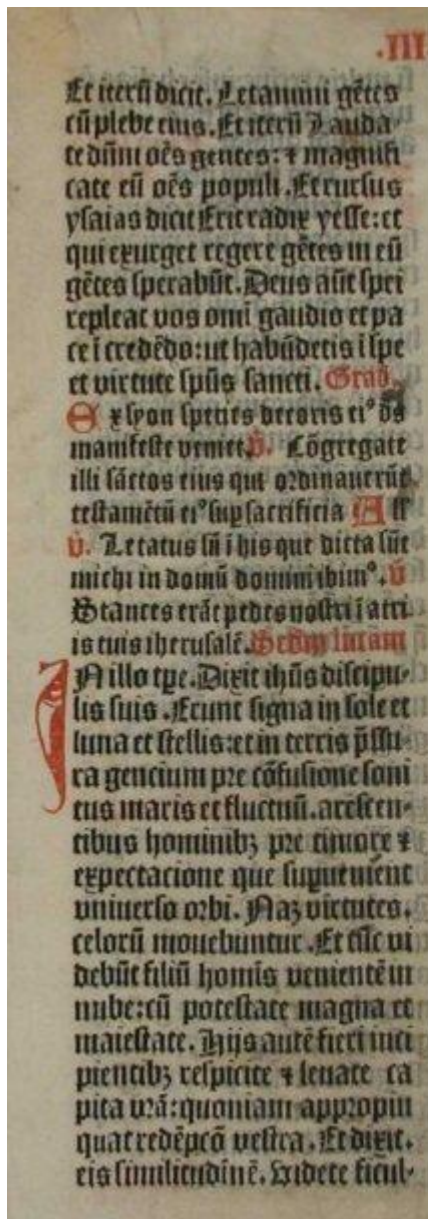 .III
Et iterū dicit. Letamini gētes
cū plebe eius. Et iterū Lauda-
te dūm oēs gentes: ⁊ magnifi
cate eū oēs populi. Et rursus
ysaias dicit Erit radix yesse: et
qui exurget regere gētes in eū
gētes sperabūt. Deus aūt spei
repleat vos omī gaudio et pa
ce ī credēdo: ut habūdetis ī spe
et virtute spūs sancti. Grad.
Ex syon species decoris eiꝰ ds̄
manifeste veniet. v̄. Cōgregate
illi sāctos eius qui ordinauerūt
testamētū eiꝰ sup sacrificia All
v̄. Letatus sū ī his que dicta sūt
michi in domū domini ibimꝰ. v̄
Stantes erāt pedes nostri ī atri
is tuis iherusalē. Secdm lucam
IN illo tpe. Dixit ihūs discipu-
lis suis. Erunt signa in sole et
luna et stellis: et in terris p̄ssu-
ra gencium pre cōfusione soni
tus maris et fluctuū. arescen-
tibus hominibꝫ pre timore ⁊
expectacione que supuenient
vniuerso orbi. Naꝫ virtutes.
celorū mouebuntur. Et tūc vi
debūt filiū homīs venientē in
nube: cū potestate magna et
maiestate. Hijs autē fieri inci
pientibꝫ respicite ⁊ leuate ca
pita vrā: quoniam appropin
quat redēpcō vestra. Et dixit.
eis similitudinē. Videte ficul-